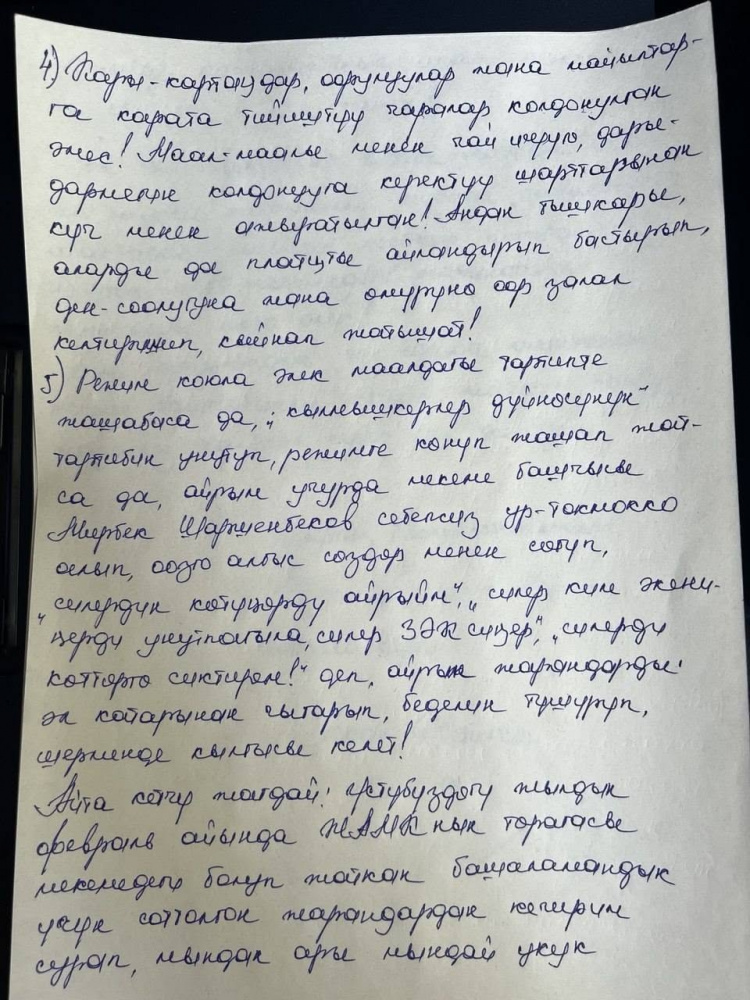 4) Кары-картаңдар, оорулуулар жана майыптар-
га карата тийиштүү чаралар колдонулган
эмес! Маал-маалы менен чай ичүүгө, дары-
дармекти колдонууга керектүү шарттарынан
күч менен ажыратылган! Андан тышкары,
аларды да плацты айландырып бастырып,
ден-соолугуна жана өмүрүнө оор залал
келтиришип, кыйнап жатышат!
5) Режим коюла элек маалдагы тартипте
жашабаса да, „кылмышкерлер дүйнөсүнүн"
тартибин унутуп, режимге көнүп жашап жат-
са да, айрым учурда мекеме башчысы
Мирбек Шаршенбеков себепсиз ур-токмокко
алып, оозго алгыс сөздөр менен сөгүп,
„силердин көтүңөрдү айрыйм", „силер ким экени-
ңерди унутпагыла, силер ЗЭК сиңер", „силерди
көттөргө сиктирем!" деп, айрым жарандарды
эл катарынан чыгарып, беделин түшүрүп,
шерменде кылгысы келет!
Айта кетчү жагдай: үстүбүздөгү жылдын
февраль айында ЖАМКнын төрагасы
мекемедеги болуп жаткан башаламандык
үчүн соттолгон жарандардан кечирим
сурап, мындан ары мындай укук